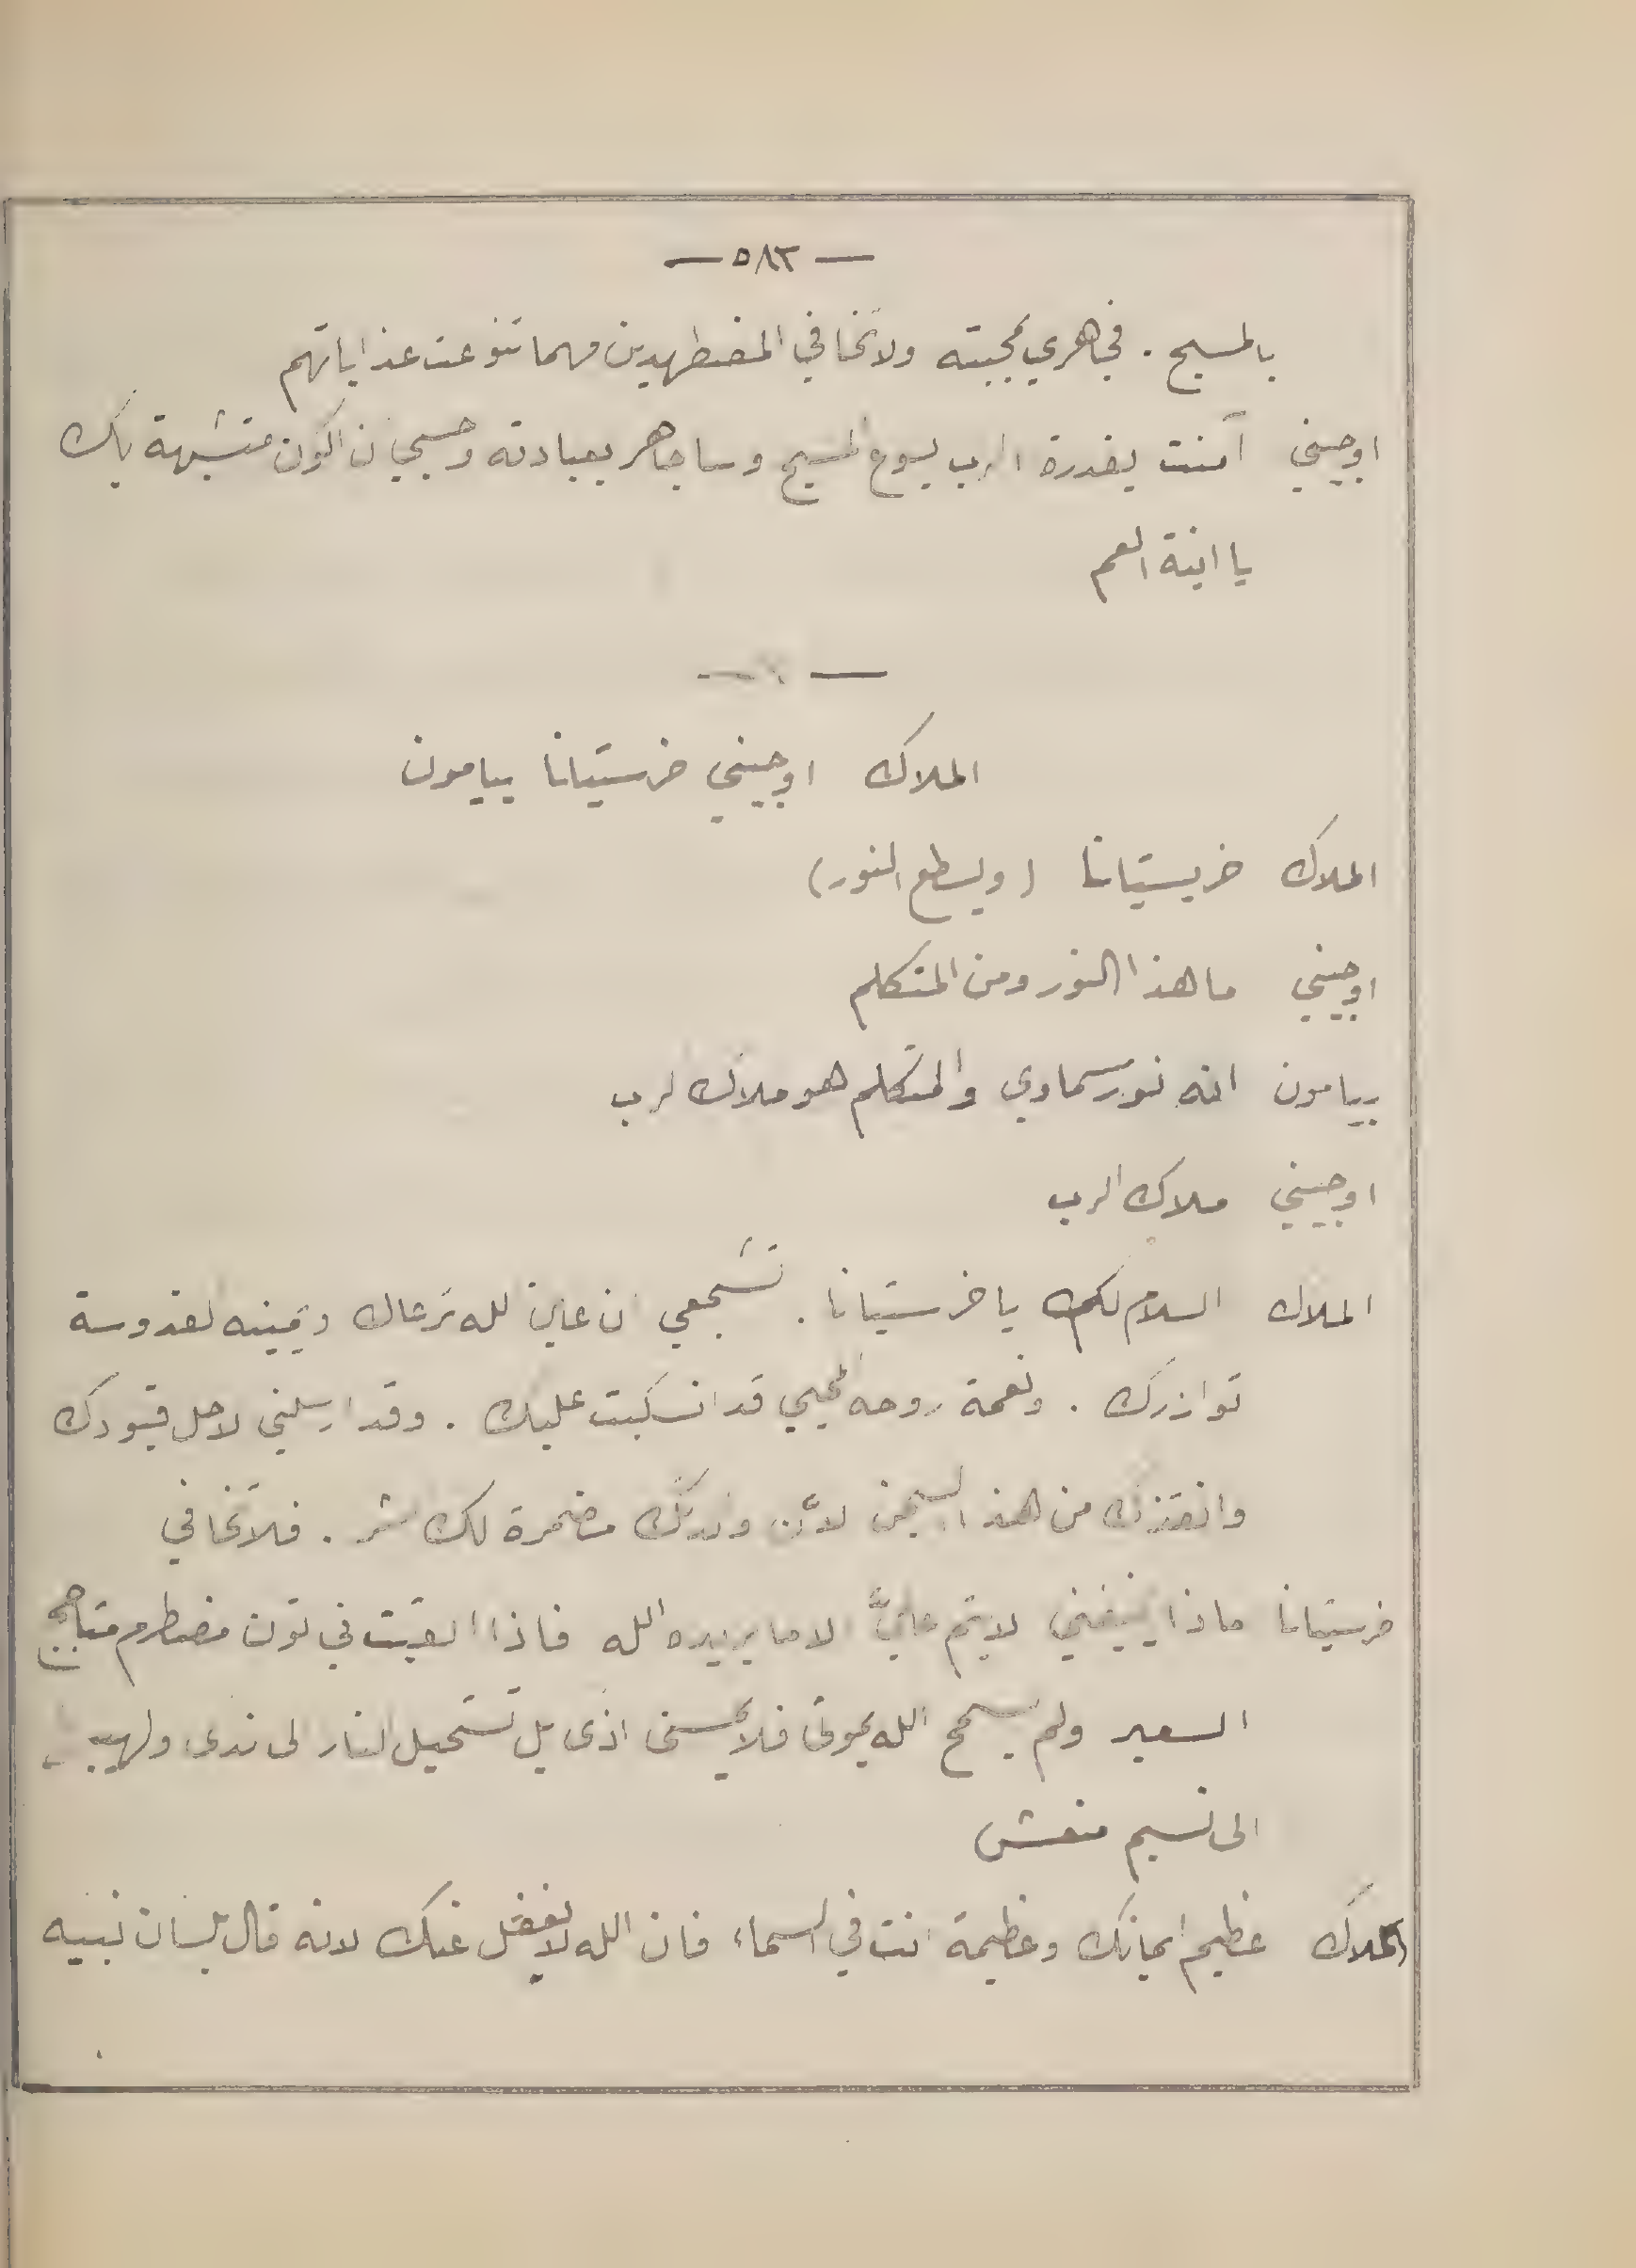 — ٥٨٣ —
بالمسيح . فجاهري بمحبته ولا تخافي المضطهدين مهما تنوعت عذاباتهم
اوجيني آمنت بقدرة الرب يسوع المسيح وساجاهر بعبادته وحسبي ان اكون متشبهة بك
يا ابنة العم
الملاك اوجيني خرستيانا بيامون
الملاك خريستيانا (ويسطع النور)
اوجيني ما هذا النور ومن المتكلم
بيامون انه نور سماوي والمتكلم هو ملاك الرب
اوجيني ملاك الرب
الملاك السلام لك يا خرستيانا . تشجعي ان عين الله ترعاك ويمينه القدوسة
توازرك . ونعمة روحه المحيي قد انسكبت عليك . وقد ارسلني لاحل قيودك
وانقذك من هذا السجن لان والدك مضمرة لك شر . فلا تخافي
خرستيانا ماذا يخيفني لا يتم عليَّ الا ما يريده الله فاذا القيت في اتون مضطرم متأجج
السعير ولم يسمح الله بموتي فلا يمسني اذى بل تستحيل النار الى ندى ولهيبها
الى نسيم منعش
الملاك عظيم ايمانك وعظيمة انت في السماء فان الله لا يغفل عنك لانه قال بلسان نبيه